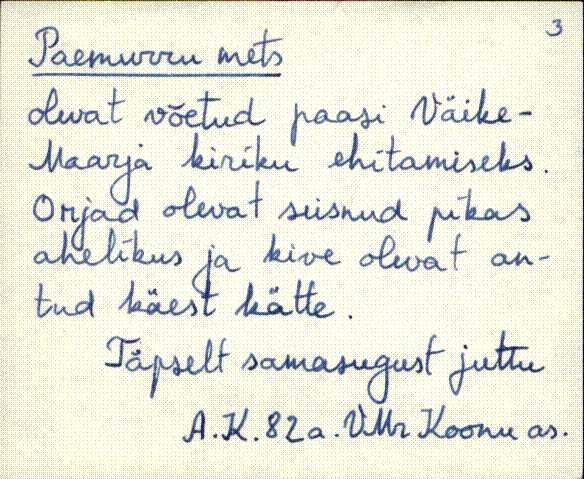 3
Paemurru mets
olevat võetud paasi Väike-
Maarja kiriku ehitamiseks.
Orjad olevat seisnud pikas
ahelikus ja kive olevat an-
tud käest kätte.
Täpselt samasugust juttu
A.K. 82 a. VMr Koonu as.